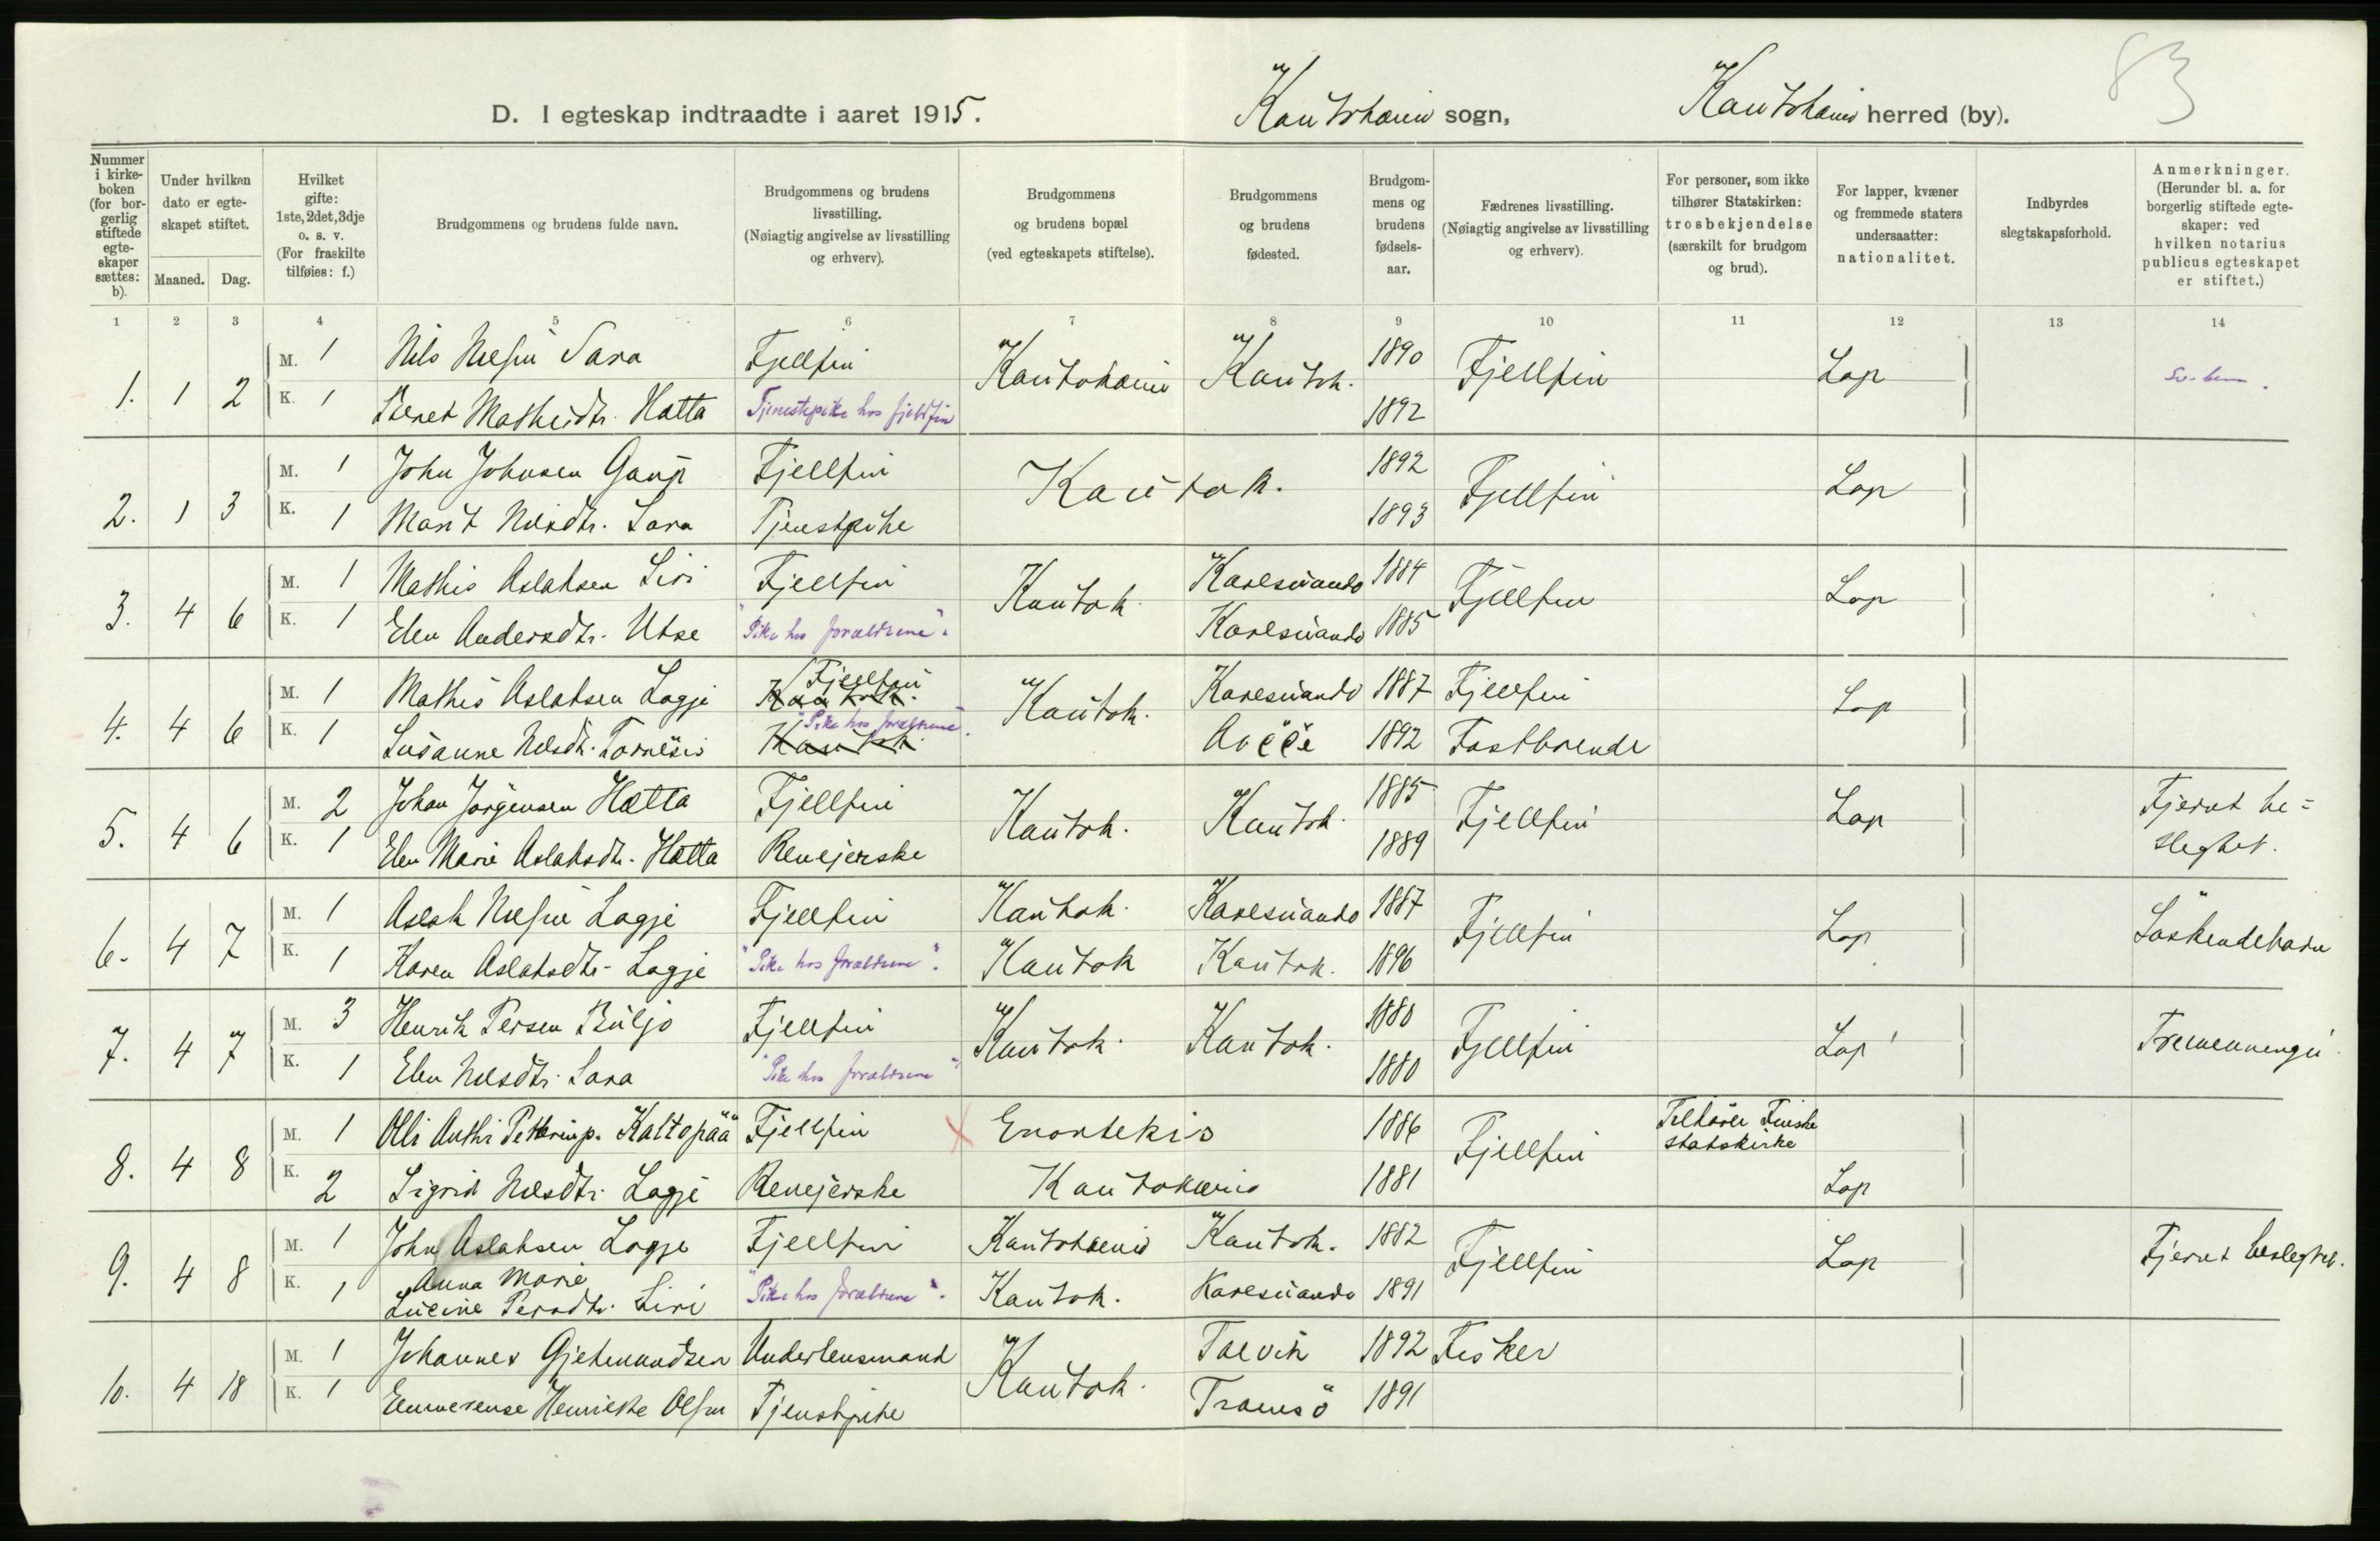 83
D. I egteskap indtraadte i aaret 1915. Kautokeino sogn, Kautokeino herred (by).
Nummer i kirke-boken (for bor-gerlig stiftede egte-skaper sættes: b).
Under hvilken dato er egte-skapet stiftet.
Maaned. Dag.
Hvilket gifte: 1ste, 2det, 3dje o. s. v. (For fraskilte tilføies: f.)
Brudgommens og brudens fulde navn.
Brudgommens og brudens livsstilling. (Nøiagtig angivelse av livsstilling og erhverv).
Brudgommens og brudens bopæl (ved egteskapets stiftelse).
Brudgommens og brudens fødested.
Brudgom-mens og brudens fødsels-aar.
Fædrenes livsstilling. (Nøiagtig angivelse av livsstilling og erhverv).
For personer, som ikke tilhører Statskirken: trosbekjendelse (særskilt for brudgom og brud).
For lapper, kvæner og fremmede staters undersaatter: nationalitet.
Indbyrdes slegtskapsforhold.
Anmerkninger. (Herunder bl. a. for borgerlig stiftede egte-skaper: ved hvilken notarius publicus egteskapet er stiftet.)
1 2 3 4 5 6 7 8 9 10 11 12 13 14
M. 1 Nils Nilsen Sara Fjellfin 1890
1. 1 2 Kautokeino Kautok. Fjellfin Lap
K. 1 Beret Mathisdtr. Hatta Tjenestepike hos fjeldfin 1892
M. 1 John Johnsen Gaup Fjellfin 1892
2. 1 3 Kautok. Fjellfin Lap
K. 1 Marit Nilsdtr. Sara Tjenstpike 1893
M. 1 Mathis Aslaksen Siri Fjellfin Karesuando 1884
3. 4 6 Kautok. Fjellfin Lap
K. 1 Elen Andersdtr. Utse "Pike hos forældrene". Karesuando 1885
M. 1 Mathis Aslaksen Logje Kautok. Fjellfin Karesuando 1887 Fjellfin
4. 4 6 Kautok. Lap
K. 1 Susanne Nilsdtr. Tornesis Kautok. "Pike hos forældrene". Avčče 1892 Fastboende
M. 2 Johan Jørgensen Hætta Fjellfin 1885
5. 4 6 Kautok. Kautok. Fjellfin Lap Fjernt be=slegtet.
K. 1 Elen Marie Aslaksdtr. Hætta Renejerske 1889
M. 1 Aslak Nilsen Logje Fjellfin Kautok. Karesuando 1887
6. 4 7 Fjellfin Lap Söskendebarn
K. 1 Karen Aslaksdtr. Logje "Pike hos forældrene". Kautok Kautok. 1896
M. 3 Henrik Persen Buljo Fjellfin 1880
7. 4 7 Kautok. Kautok. Fjellfin Lap Tremenninger
K. 1 Elen Nilsdtr. Sara "Pike hos forældrene" 1880
M. 1 Olli Anthi Petterinp. Kaltopää Fjellfin Enontekis 1886 Tilhörer Finske statskirke
8. 4 8 Fjellfin
K. 2 Sigrid Nilsdtr. Logje Renejerske Kautokeino 1881 Lap
M. 1 John Aslaksen Logje Fjellfin Kautokeino Kautok. 1882
9. 4 8 Fjellfin Lap Fjernt beslegtet.
K. 1 Anna Marie Lucine Persdtr. Siri "Pike hos forældrene". Kautok. Karesuando 1891
M. 1 Johannes Gjetmundsen Underlensmand Talvik 1892 Fisker
10. 4 18 Kautok.
K. 1 Emmerense Henrikke Olsen Tjenstpike Tromsö 1891